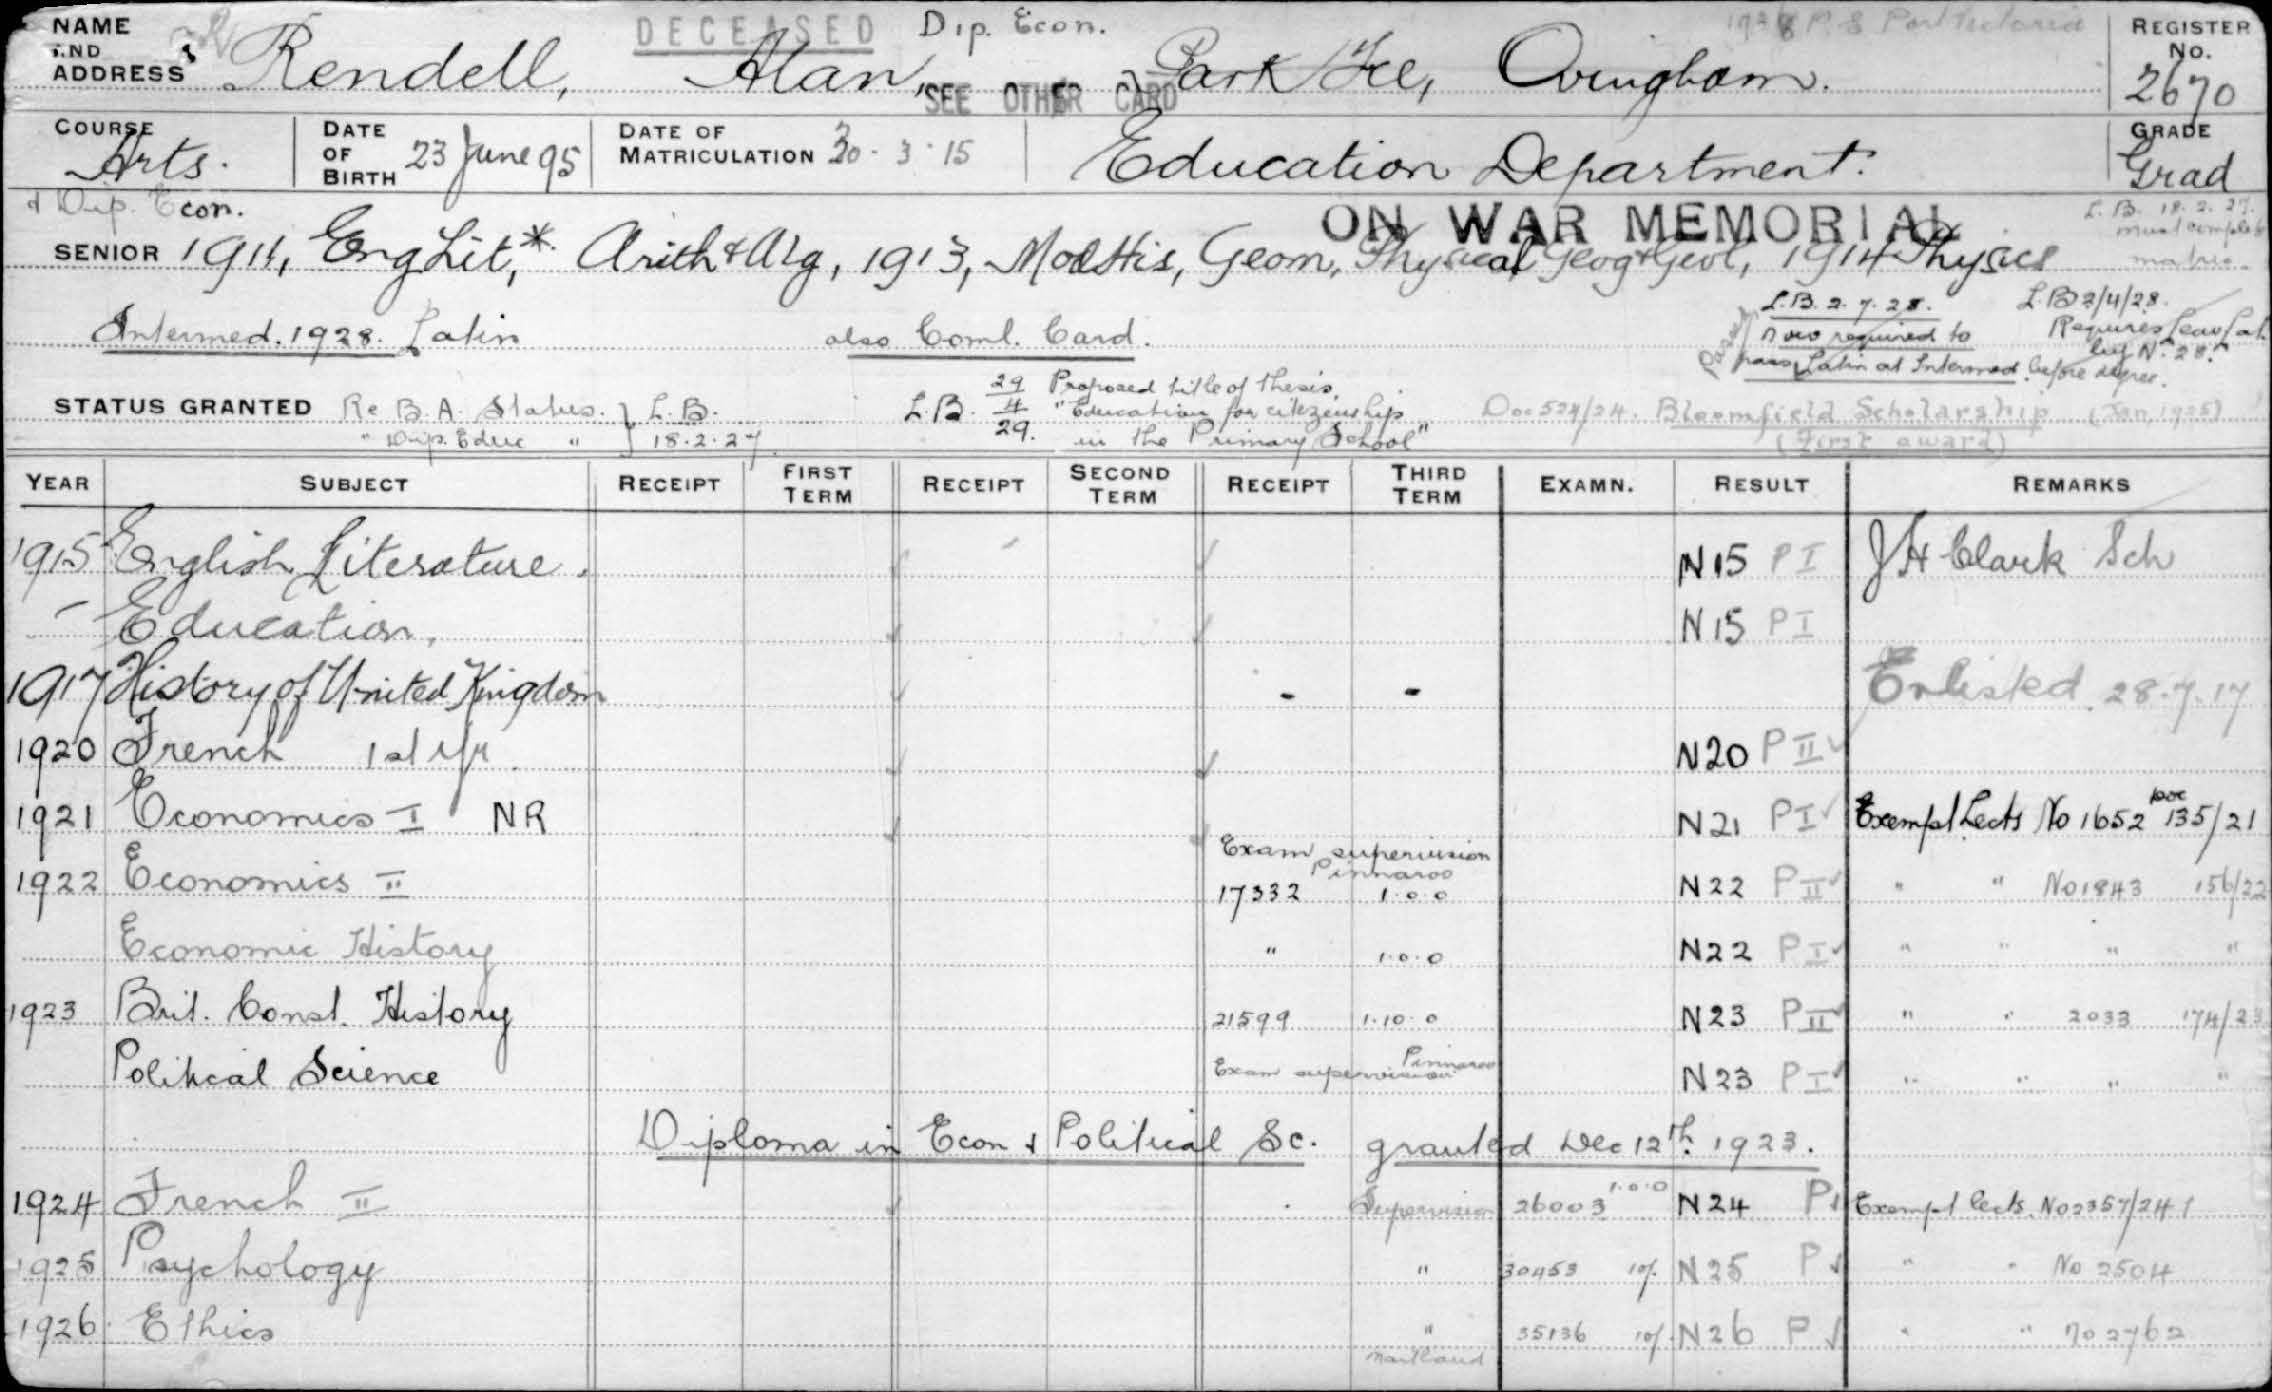 NAME AND ADDRESS Rendell, Alan, Park Tce, Ovingham.
DECEASED Dip. Econ. 1928 P. S Port Victoria
SEE OTHER CARD
REGISTER No. 2670
COURSE Arts. DATE OF BIRTH 23 June 95 DATE OF MATRICULATION 30-3-15 Education Department. GRADE Grad
& Dip. Econ.
ON WAR MEMORIAL
L. B. 18. 2. 27. must complete matric.
SENIOR 1911, Eng Lit,* Arith & Alg, 1913, Mod His, Geom, Physical Geog & Geol, 1914 Physics
Intermed. 1928. Latin also Coml. Card.
L.B. 2. 7. 28. Now required to pass Latin at Intermed. before degree.
Passed
L.B 2/4/28. Requires Leav Lat. by N. 28.
STATUS GRANTED Re B. A. Status. } L. B.
" Dip. Educ " } 18. 2. 27
L.B. 29/4/29. Proposed title of thesis, "Education for citizenship in the Primary School"
Doc 524/24. Bloomfield Scholarship (Jan, 1925)
(First award)
YEAR SUBJECT RECEIPT FIRST TERM RECEIPT SECOND TERM RECEIPT THIRD TERM EXAMN. RESULT REMARKS
1915 English Literature. N15 P I J H Clark Sch
Education, N15 P I
1917 History of United Kingdom - - Enlisted 28-7-17
1920 French 1st yr N20 P II ✓
1921 Economics I NR N21 P I ✓ Exempt Lects No 1652 Doc 135/21
Exam supervision Pinnaroo
1922 Economics II 17332 1.0.0 N22 P II ✓ " " No 1843 156/22
Economic History " 1.0.0 N22 P I ✓ " " " "
1923 Brit. Const. History 21599 1.10.0 N23 P II ✓ " " 2033 174/23
Political Science Exam supervision Pinnaroo N23 P I ✓ " " " "
Diploma in Econ & Political Sc. granted Dec 12th. 1923.
1924 French II Supervision 26003 1.0.0 N24 P ✓ Exempt lects. No 2357/24
1925 Psychology " 30453 10/. N25 P ✓ " " No 2504
1926 Ethics " 35136 10/. N26 P ✓ " " No 2762
Maitland